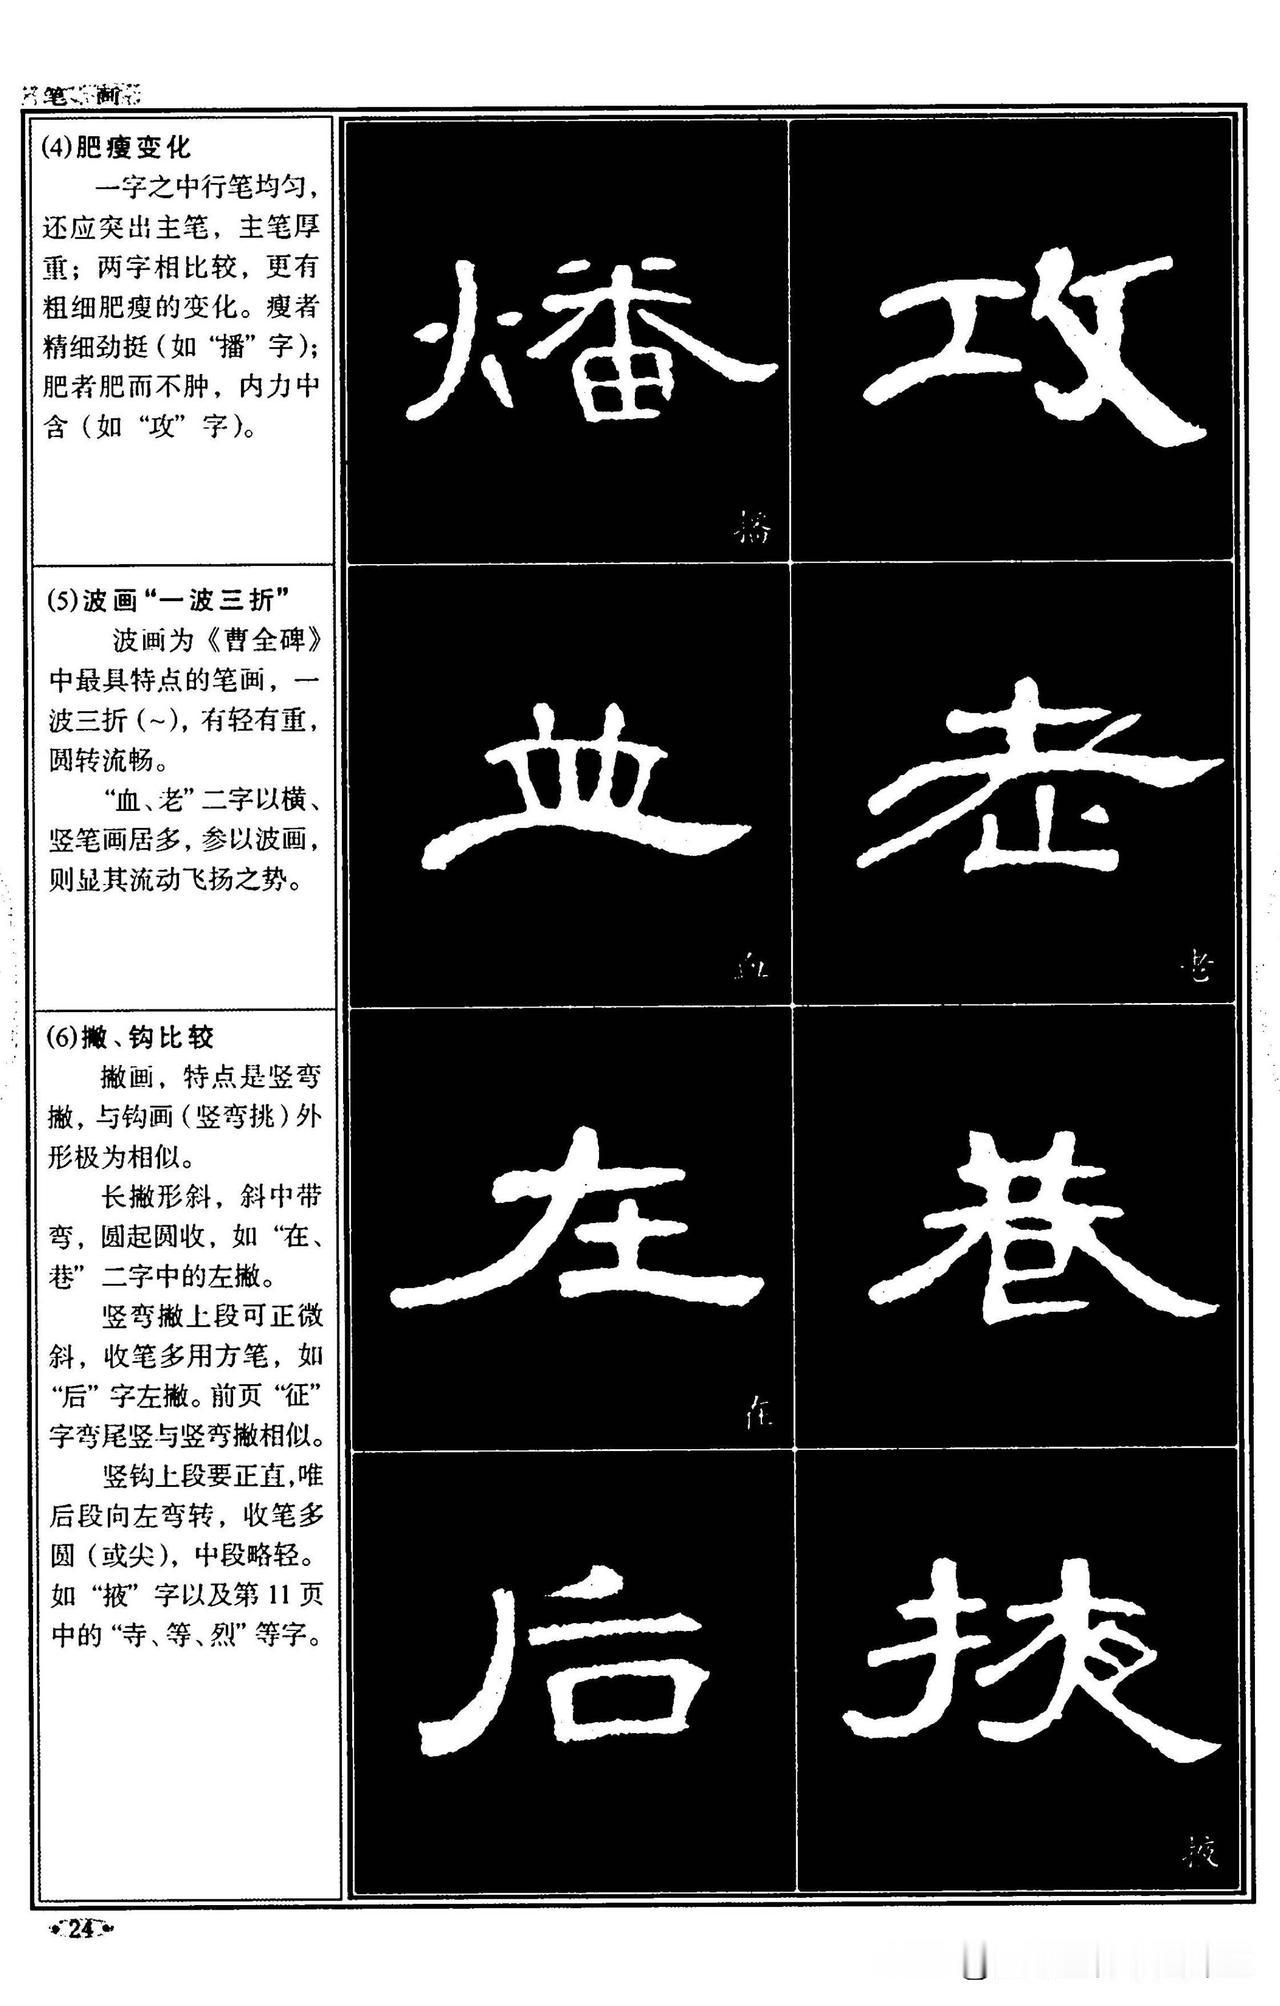 笔画
(4)肥瘦变化
一字之中行笔均匀，
还应突出主笔，主笔厚
重；两字相比较，更有
粗细肥瘦的变化。瘦者
精细劲挺(如“播”字)；
肥者肥而不肿，内力中
含(如“攻”字)。
燔 攻
播
(5)波画“一波三折”
波画为《曹全碑》
中最具特点的笔画，一
波三折(~)，有轻有重，
圆转流畅。
“血、老”二字以横、
竖笔画居多，参以波画，
则显其流动飞扬之势。
血 老
血 老
(6)撇、钩比较
撇画，特点是竖弯
撇，与钩画(竖弯挑)外
形极为相似。
长撇形斜，斜中带
弯，圆起圆收，如“在、
巷”二字中的左撇。
竖弯撇上段可正微
斜，收笔多用方笔，如
“后”字左撇。前页“征”
字弯尾竖与竖弯撇相似。
竖钩上段要正直，唯
后段向左弯转，收笔多
圆(或尖)，中段略轻。
如“掖”字以及第11页
中的“寺、等、烈”等字。
在 巷
在
后 掖
掖
24